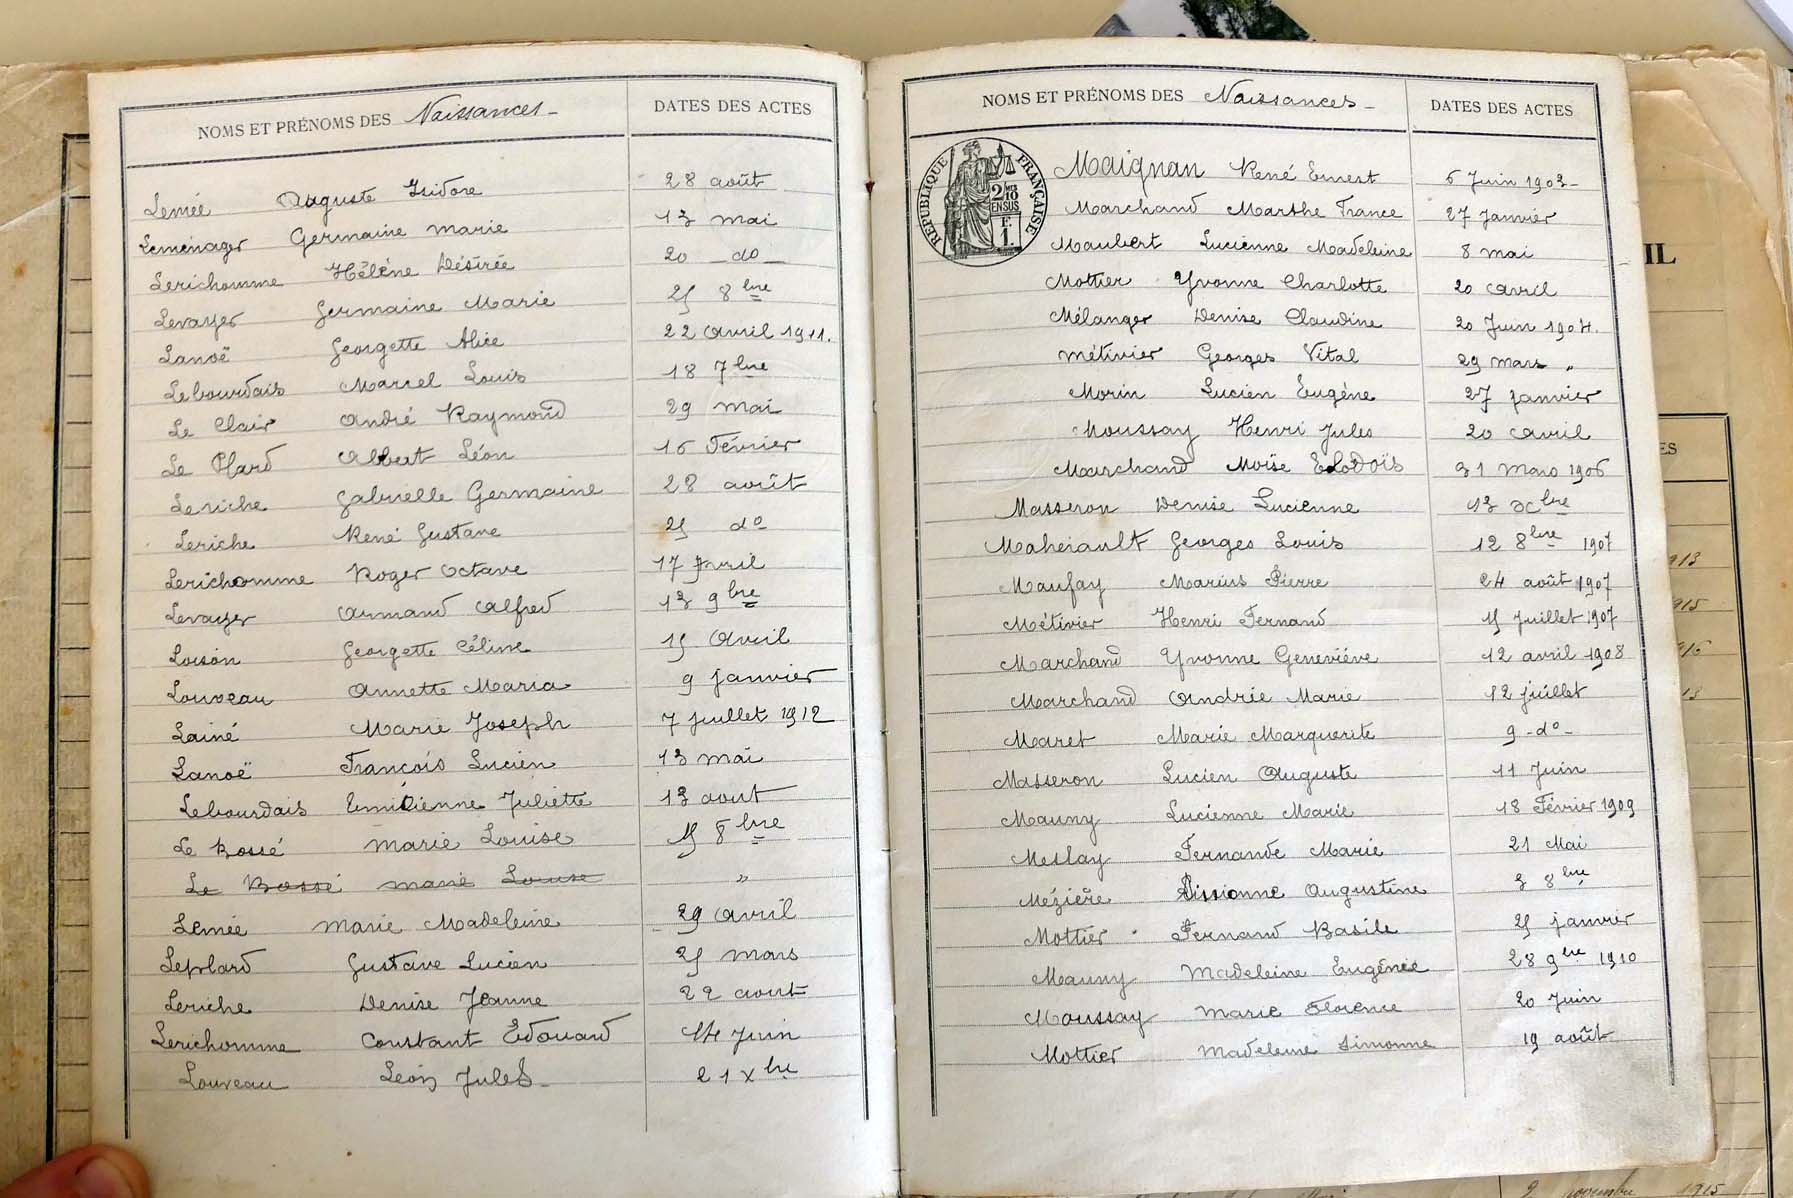 NOMS ET PRÉNOMS DES Naissances -
DATES DES ACTES
Lemée Auguste Isidore 28 août
Leménager Germaine Marie 13 mai
Lerichomme Hélène Désirée 20 - do -
Levayer Germaine Marie 25 8bre
Lanoë Georgette Alice 22 avril 1911.
Lebourdais Marcel Louis 18 7bre
Le Clair André Raymond 29 mai
Le Plard Albert Léon 16 Février
Leriche Gabrielle Germaine 28 août
Leriche René Gustave 25 do
Lerichomme Roger Octave 17 Avril
Levayer Armand Alfred 13 9bre
Loison Georgette Céline 15 Avril
Louveau Annette Maria 9 janvier
Lainé Marie Joseph 7 juillet 1912
Lanoë François Lucien 13 mai
Lebourdais Emilienne Juliette 13 aout
Le Bossé Marie Louise 15 8bre
Le Bossé Marie Louise "
Lemée Marie Madeleine 29 avril
Leplard Gustave Lucien 25 mars
Leriche Denise Jeanne 22 aout
Lerichomme Constant Edouard 14 Juin
Louveau Léon Jules - 21 Xbre
NOMS ET PRÉNOMS DES Naissances -
DATES DES ACTES
RÉPUBLIQUE FRANÇAISE
2/10
EN SUS
F.
1.
Maignan René Ernest 6 Juin 1903 -
Marchand Marthe France 27 Janvier
Maubert Lucienne Madeleine 8 mai
Mottier Yvonne Charlotte 20 avril
Mélanger Denise Claudine 20 Juin 1904.
Métivier Georges Vital 29 mars "
Morin Lucien Eugène 27 janvier
Moussay Henri Jules 20 avril
Marchand Moïse Elodoïs 31 mars 1906
Masseron Denise Lucienne 13 Xbre
Maherault Georges Louis 12 8bre 1907
Maufay Marius Pierre 24 août 1907
Métivier Henri Fernand 15 Juillet 1907
Marchand Yvonne Geneviève 12 avril 1908
Marchand Andrée Marie 12 juillet
Maret Marie Marguerite 9 - do -
Masseron Lucien Auguste 11 Juin
Mauny Lucienne Marie 18 Février 1909
Meslay Fernande Marie 21 Mai
Mézière Augustine 3 8bre
Mottier Fernand Basile 25 janvier
Mauny Madeleine Eugénie 28 9bre 1910
Moussay Marie Florence 20 Juin
Mottier Madeleine Simonne 19 août
IL
ES
1913
1915
1916
13
2 novembre 1915